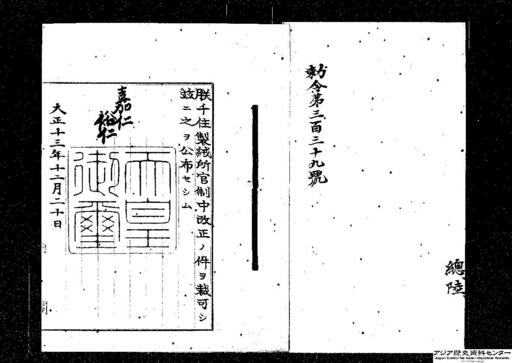 勅令第三百二十九號
總陸
朕千住製絨所官制中改正ノ件ヲ裁可シ
玆ニ之ヲ公布セシム
嘉仁
裕仁
天皇御璽
大正十三年十二月二十日
アジア歴史資料センター
Japan Center for Asian Historical Records